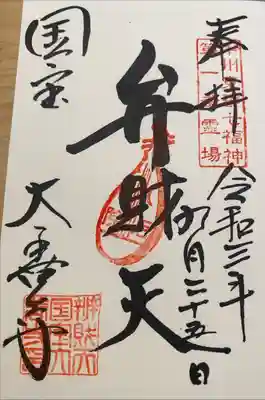 奉拝
州七福神
第一霊場
令和三年
月二十五日
弁財天
国宝
大善寺
辨財天
国宝
大善寺